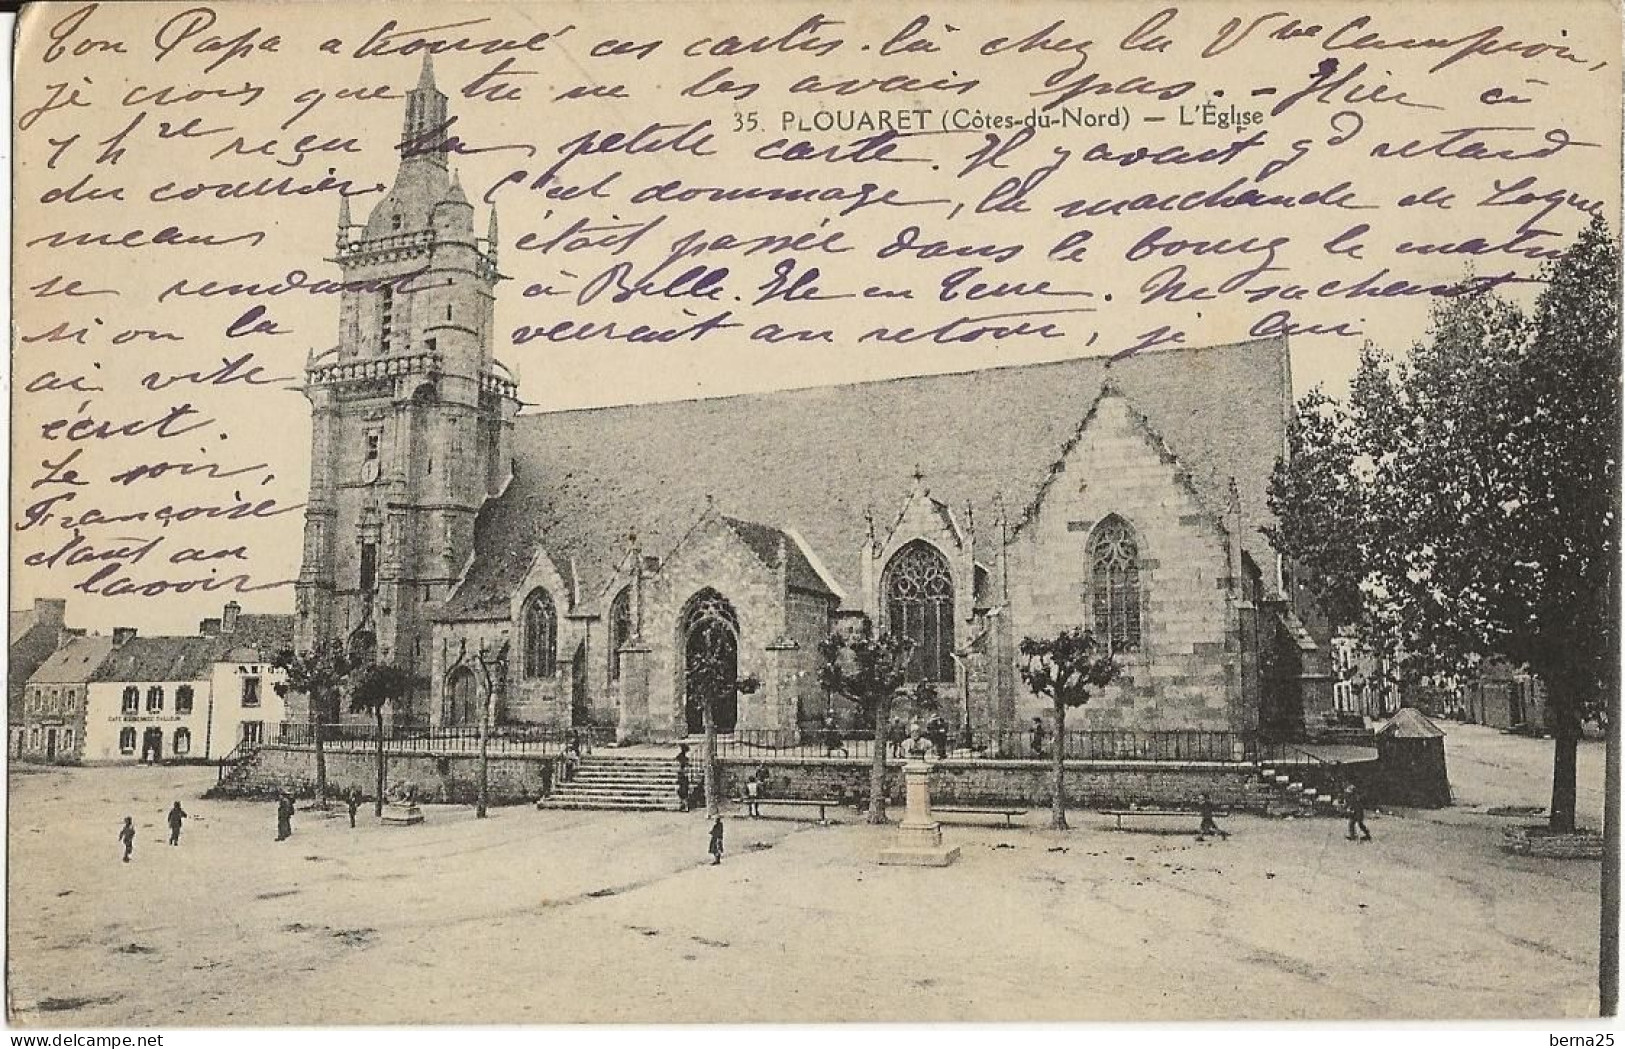 Ton Papa a trouvé ces cartes-là chez la Vve Campion,
je crois que tu ne les avais pas. - Hier à
35. PLOUARET (Côtes-du-Nord) — L'Église
7 hre reçu ta petite carte. Il y avait gd retard
du courrier. C'est dommage, la marchande de Logue
means était passée dans le bourg le matin
se rendant à Belle-Ile en Terre. Ne sachant
si on la verrait au retour, je lui
ai vite
écrit.
Le soir,
Françoise
étant au
lavoir
delcampe.net
berna25